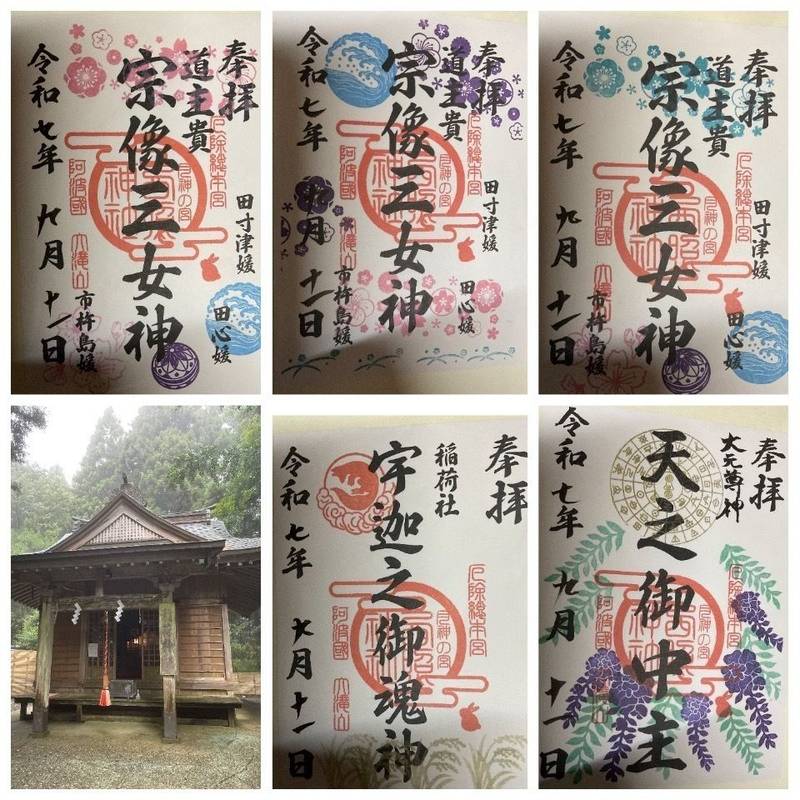 奉拝
道主貴
厄除総本宮
田寸津媛
厄神の宮
田心媛
宗像三女神
西照神社
阿波國
大滝山
市杵島媛
令和七年 九月 十一日
奉拝
道主貴
厄除総本宮
田寸津媛
厄神の宮
田心媛
宗像三女神
西照神社
阿波國
大滝山
市杵島媛
令和七年 九月 十一日
奉拝
道主貴
厄除総本宮
田寸津媛
厄神の宮
田心媛
宗像三女神
西照神社
阿波國
大滝山
市杵島媛
令和七年 九月 十一日
奉拝
稲荷社
厄除総本宮
厄神の宮
宇迦之御魂神
西照神社
阿波國
大滝山
令和七年 九月 十一日
奉拝
大元尊神
厄除総本宮
厄神の宮
天之御中主
西照神社
令和七年 九月 十一日